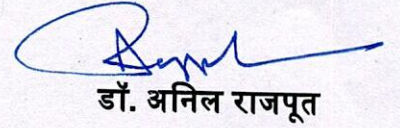 डॉ. अनिल राजपूत